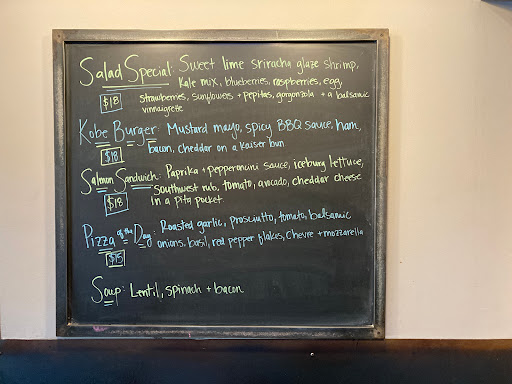 Salad Special: Sweet lime sriracha glaze shrimp,
Kale mix, blueberries, raspberries, egg,
$18 strawberries, sunflowers + pepitas, gorgonzola + a balsamic
vinnaigrette
Kobe Burger: Mustard mayo, spicy BBQ sauce, ham,
$18 bacon, cheddar on a kaiser bun
Salmon Sandwich: Paprika + pepperoncini sauce, iceburg lettuce,
$18 southwest rub, tomato, avocado, cheddar cheese
in a pita pocket
Pizza of the Day: Roasted garlic, prosciutto, tomato, balsamic
$15 onions, basil, red pepper flakes, chevre + mozzarella
Soup: Lentil, spinach + bacon